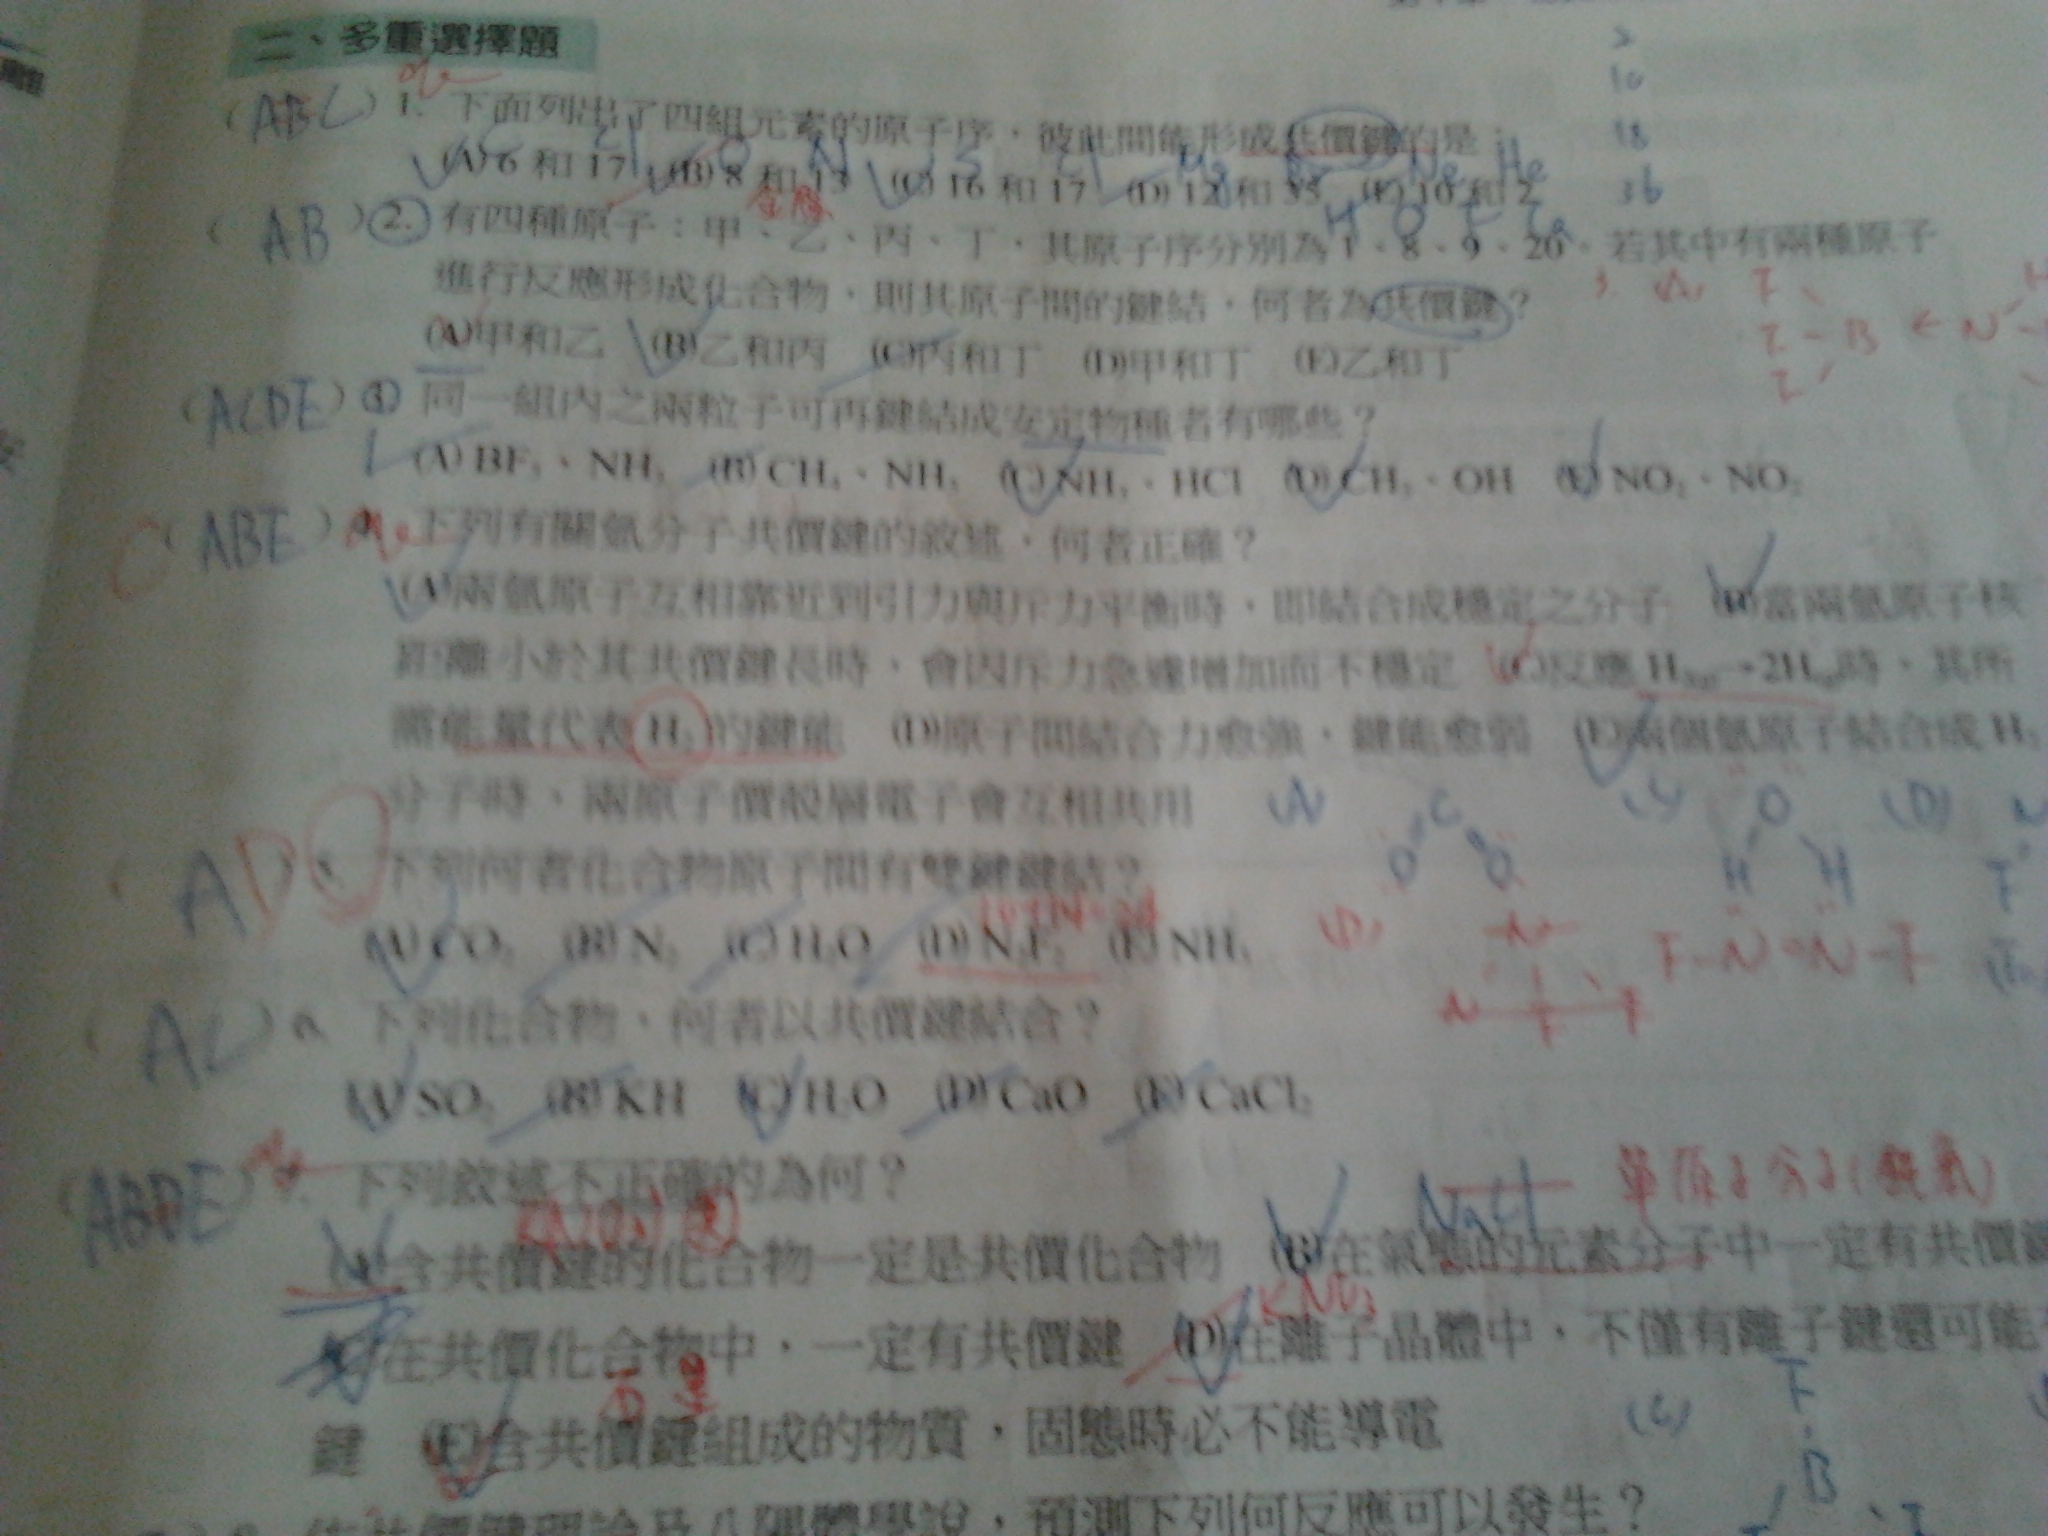 二、多重選擇題
(ABC) 1. 下面列出了四組元素的原子序，彼此間能形成共價鍵的是：
(A) 6 和 17 (B) 8 和 13 (C) 16 和 17 (D) 12 和 35 (E) 10 和 2
金屬
(AB) 2. 有四種原子：甲、乙、丙、丁，其原子序分別為 1、8、9、20。若其中有兩種原子
進行反應形成化合物，則其原子間的鍵結，何者為共價鍵？
(A)甲和乙 (B)乙和丙 (C)丙和丁 (D)甲和丁 (E)乙和丁
(ACDE) 3. 同一組內之兩粒子可再鍵結成安定物種者有哪些？
(A) BF₃、NH₃ (B) CH₄、NH₃ (C) NH₃、HCl (D) CH₃、OH (E) NO₂、NO₂
(ABE) 下列有關氫分子共價鍵的敘述，何者正確？
(A)兩氫原子互相靠近到引力與斥力平衡時，即結合成穩定之分子 (B)當兩氫原子核
距離小於其共價鍵長時，會因斥力急遽增加而不穩定 (C)反應 H₂(g)→2H(g)時，其所
需能量代表 H₂ 的鍵能 (D)原子間結合力愈強，鍵能愈弱 (E)兩個氫原子結合成 H₂
分子時，兩原子價殼層電子會互相共用
(AD) 下列何者化合物原子間有雙鍵鍵結？
(A) CO₂ (B) N₂ (C) H₂O (D) N₂F₂ (E) NH₃
F-N=N-F
(AC) 下列化合物，何者以共價鍵結合？
(A) SO₂ (B) KH (C) H₂O (D) CaO (E) CaCl₂
(ABDE) 7. 下列敘述不正確的為何？
NaCl 單原子分子(鈍氣)
(A)含共價鍵的化合物一定是共價化合物 (B)在氣態的元素分子中一定有共價鍵
KNO₃
在共價化合物中，一定有共價鍵 (D)在離子晶體中，不僅有離子鍵還可能
石墨
鍵 (E)含共價鍵組成的物質，固態時必不能導電
依共價鍵理論及八隅體學說，預測下列何反應可以發生？